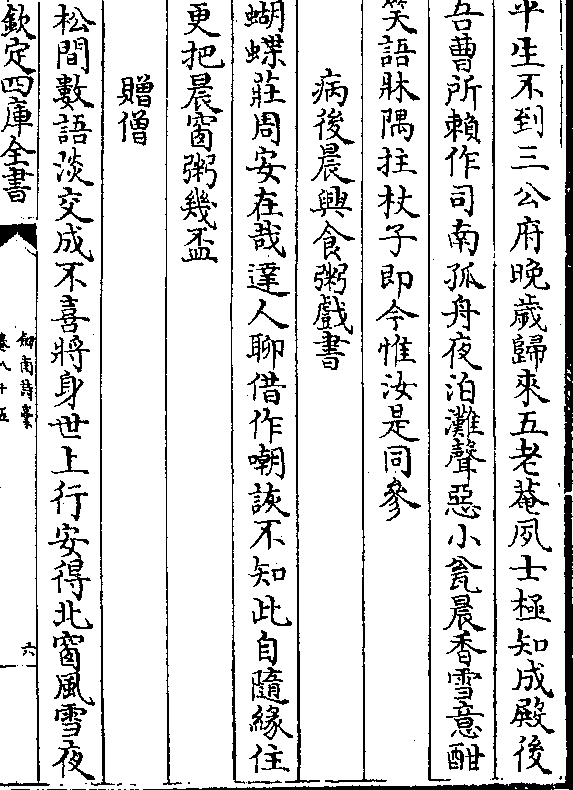 平生不到三公府晚歲歸來五老菴夙士極知成殿後
吾曹所賴作司南孤舟夜泊灘聲惡小瓮晨香雪意酣
笑語牀隅拄杖子即今惟汝是同參
病後晨興食粥戲書
蝴蝶莊周安在哉達人聊借作嘲詼不知此自隨緣住
更把晨窗粥幾盃
贈僧
松間數語淡交成不喜將身世上行安得北窗風雪夜
欽定四庫全書
劒南詩稾
卷八十五
六